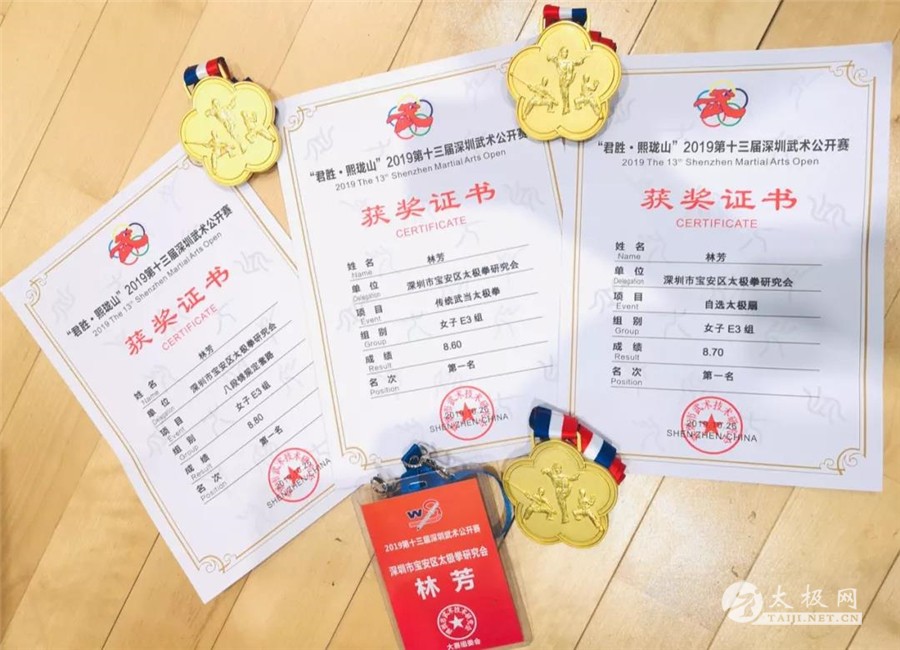 “君胜·熙珑山”2019第十三届深圳武术公开赛
2019 The 13th Shenzhen Martial Arts Open
获奖证书
CERTIFICATE
姓名 林芳
Name
单位 深圳市宝安区太极拳研究会
Delegation
项目 八段锦规定套路
Event
组别 女子E3组
Group
成绩 8.80
Result
名次 第一名
Position
SHENZHEN/CHINA
“君胜·熙珑山”2019第十三届深圳武术公开赛
2019 The 13th Shenzhen Martial Arts Open
获奖证书
CERTIFICATE
姓名 林芳
Name
单位 深圳市宝安区太极拳研究会
Delegation
项目 传统武当太极拳
Event
组别 女子E3组
Group
成绩 8.60
Result
名次 第一名
Position
SHENZHEN/CHINA
“君胜·熙珑山”2019第十三届深圳武术公开赛
2019 The 13th Shenzhen Martial Arts Open
获奖证书
CERTIFICATE
姓名 林芳
Name
单位 深圳市宝安区太极拳研究会
Delegation
项目 自选太极扇
Event
组别 女子E3组
Group
成绩 8.70
Result
名次 第一名
Position
SHENZHEN/CHINA
2019第十三届深圳武术公开赛
深圳市宝安区太极拳研究会
林芳
大赛组委会
太极网
TAIJI.NET.CN